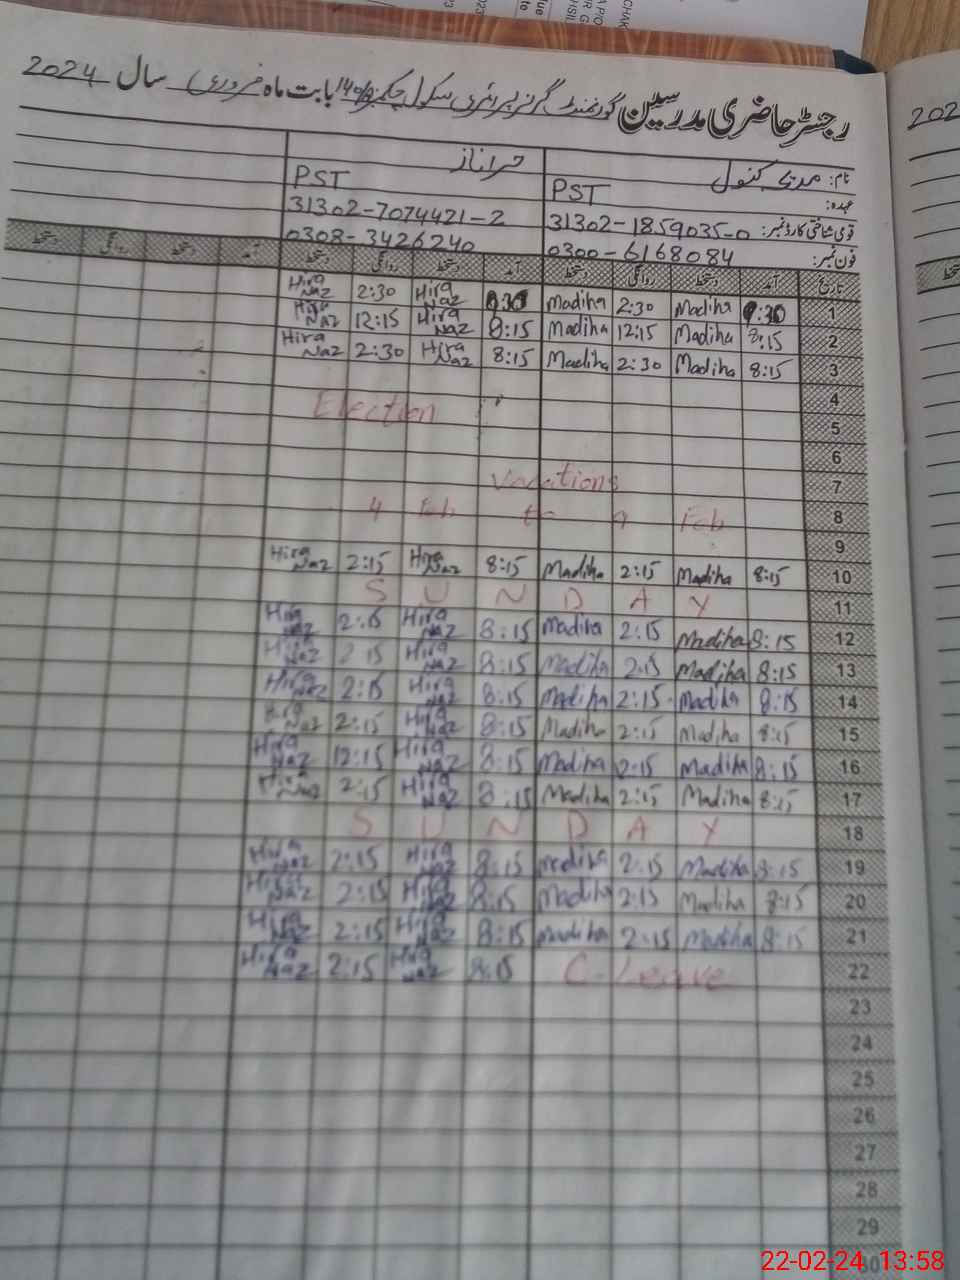 رجسٹر حاضری مدرسین گورنمنٹ گرلز پرائمری سکول چک بابت ماہ فروری سال 2024
نام: مدیحہ کنول حرا ناز
عہدہ: PST PST
قومی شناختی کارڈ نمبر: 31302-1859035-0 31302-7074421-2
فون نمبر: 0300-6168084 0308-3426240
تاریخ آمد دستخط روانگی دستخط آمد دستخط روانگی دستخط آمد دستخط روانگی دستخط
1 :30 Madiha 2:30 Madiha :30 Hira Naz 2:30 Hira Naz
2 8:15 Madiha 12:15 Madiha 8:15 Hira Naz 12:15 Hira Naz
3 8:15 Madiha 2:30 Madiha 8:15 Hira Naz 2:30 Hira Naz
4
Election
5
6
7
Vacations
8
4 Feb to 9 Feb
9
10 8:15 Madiha 2:15 Madiha 8:15 Hira Naz 2:15 Hira Naz
11 SUNDAY
12 8:15 Madiha 2:15 Madiha 8:15 Hira Naz 2:15 Hira Naz
13 8:15 Madiha 2:15 Madiha 8:15 Hira Naz 2:15 Hira Naz
14 8:15 Madiha 2:15 Madiha 8:15 Hira Naz 2:15 Hira Naz
15 8:15 Madiha 2:15 Madiha 8:15 Hira Naz 2:15 Hira Naz
16 8:15 Madiha 2:15 Madiha 8:15 Hira Naz 12:15 Hira Naz
17 8:15 Madiha 2:15 Madiha 8:15 Hira Naz 2:15 Hira Naz
18 SUNDAY
19 8:15 Madiha 2:15 Madiha 8:15 Hira Naz 2:15 Hira Naz
20 8:15 Madiha 2:15 Madiha 8:15 Hira Naz 2:15 Hira Naz
21 8:15 Madiha 2:15 Madiha 8:15 Hira Naz 2:15 Hira Naz
22 C-Leave 8:15 Hira Naz 2:15 Hira Naz
23
24
25
26
27
28
29
30
22-02-24 13:58